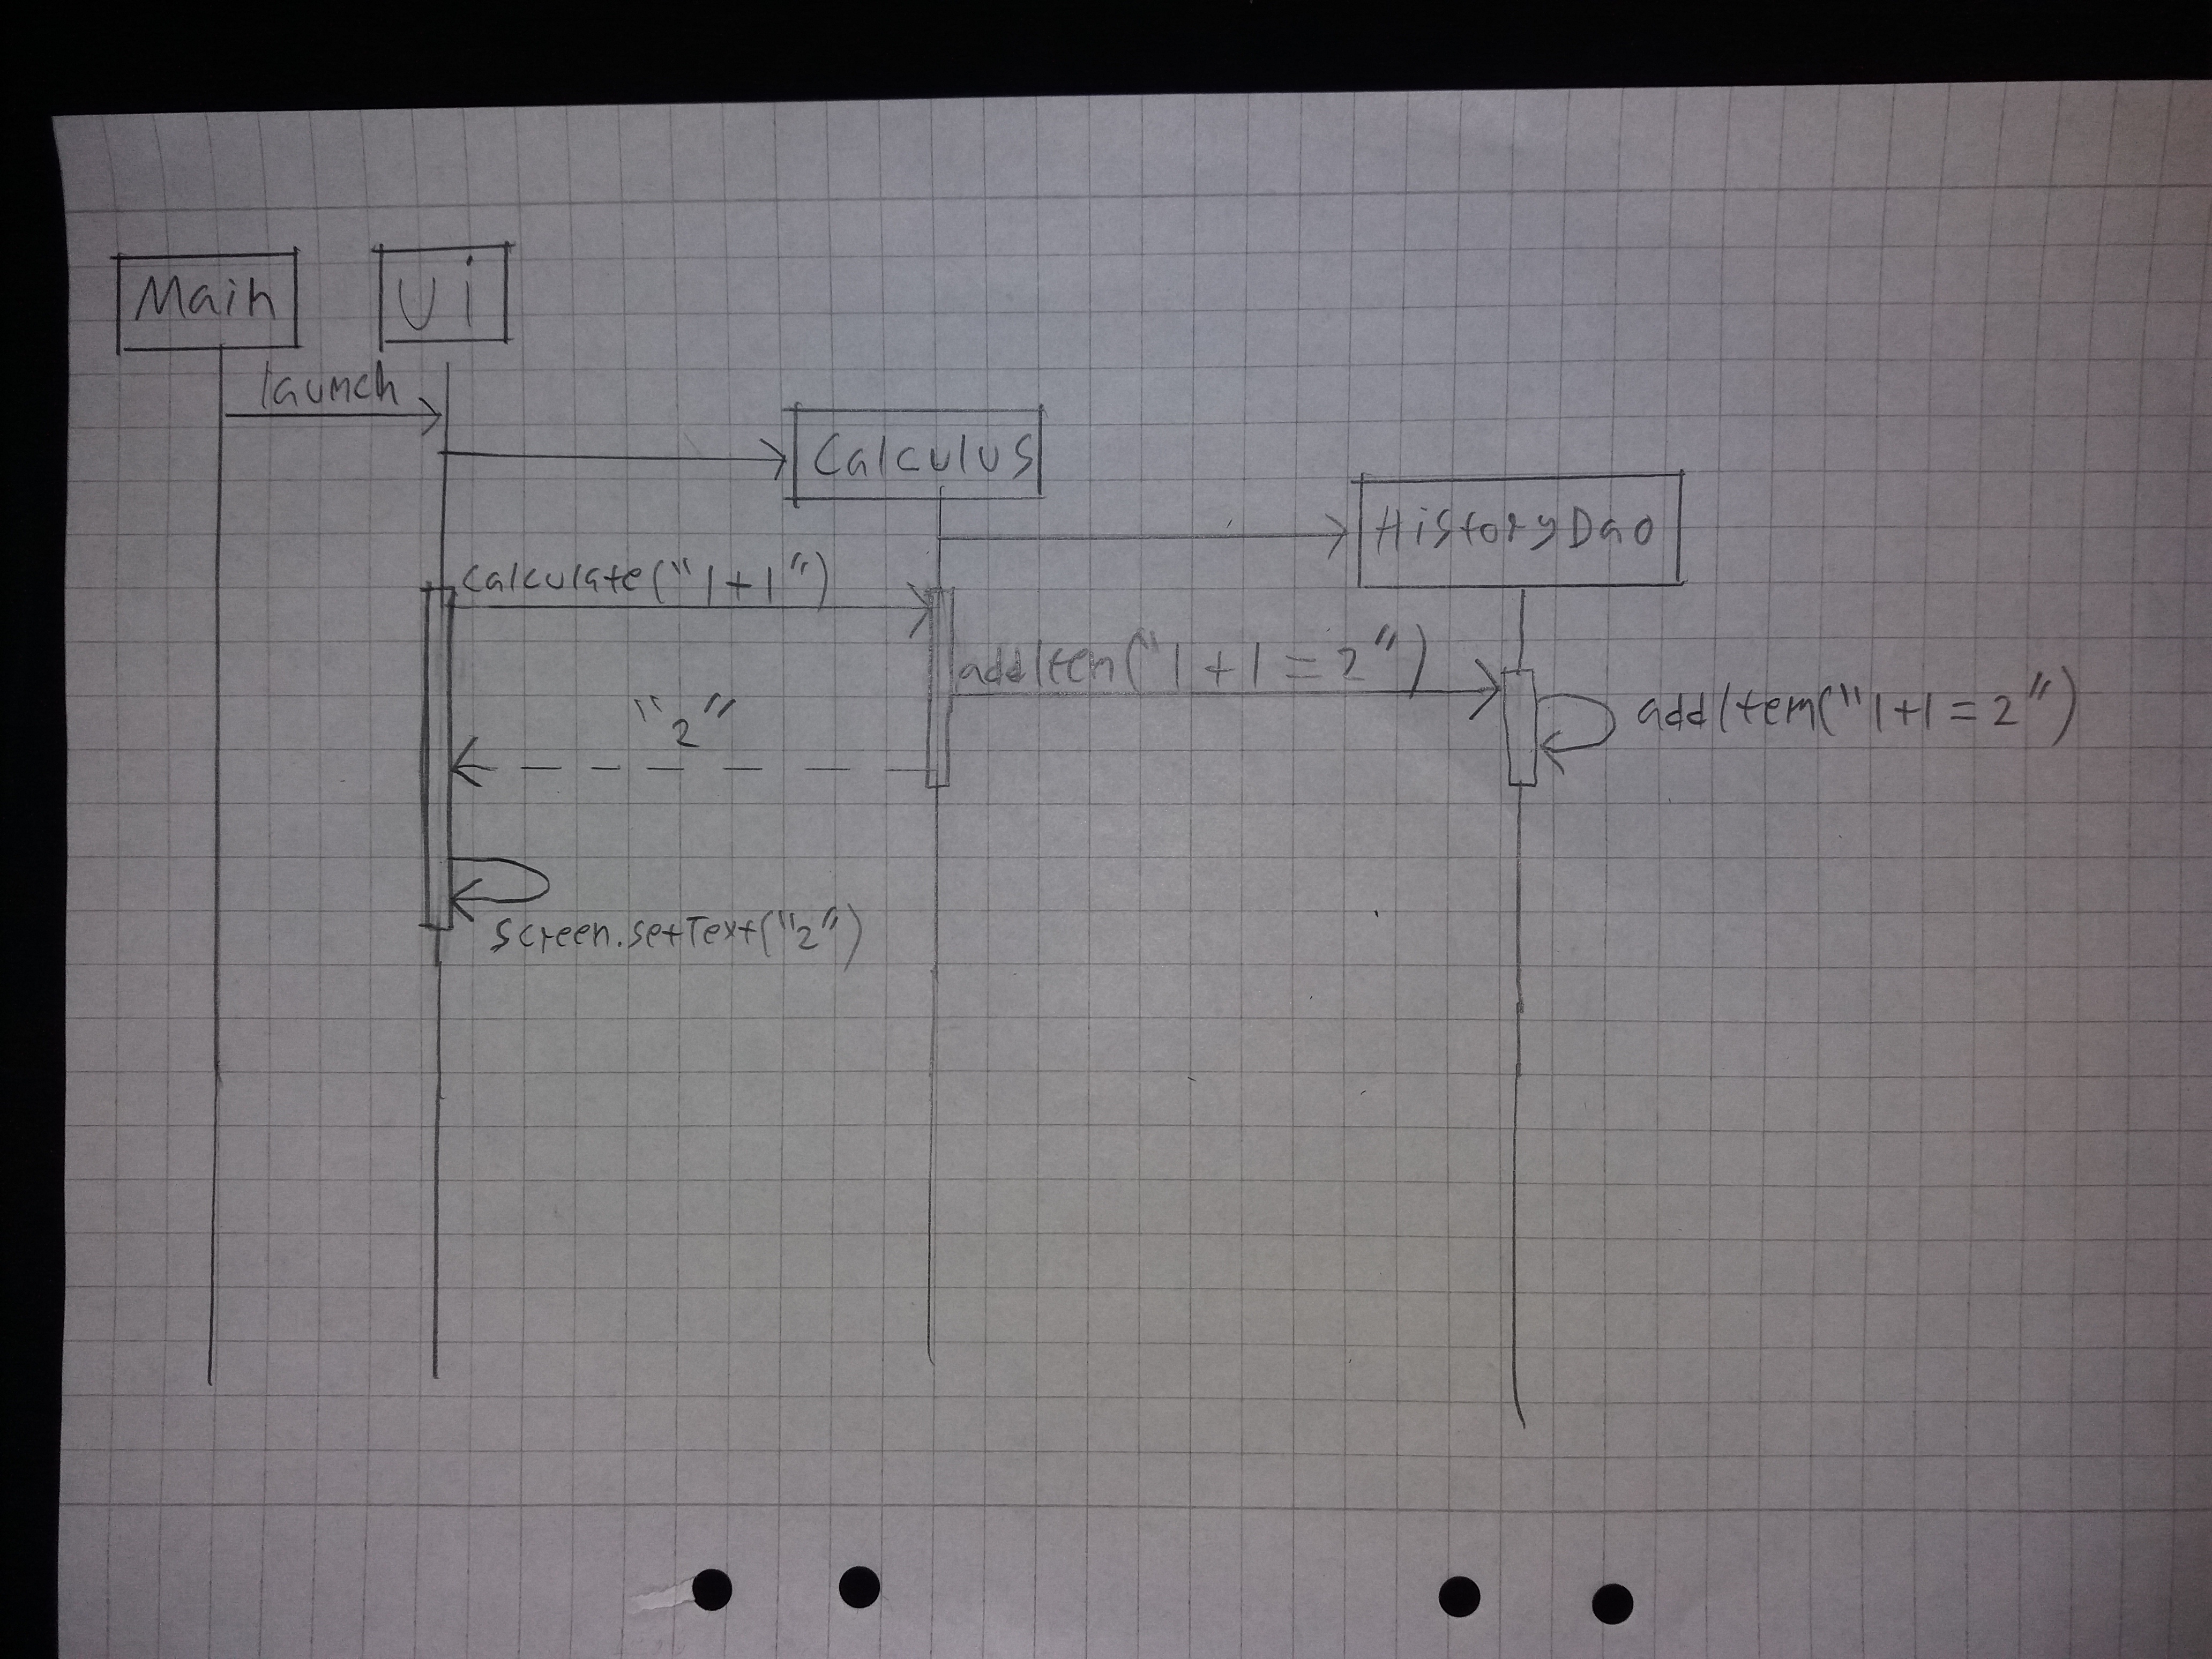 Main
Ui
launch
Calculus
HistoryDao
calculate("1+1")
addItem("1+1=2")
addItem("1+1=2")
"2"
screen.setText("2")